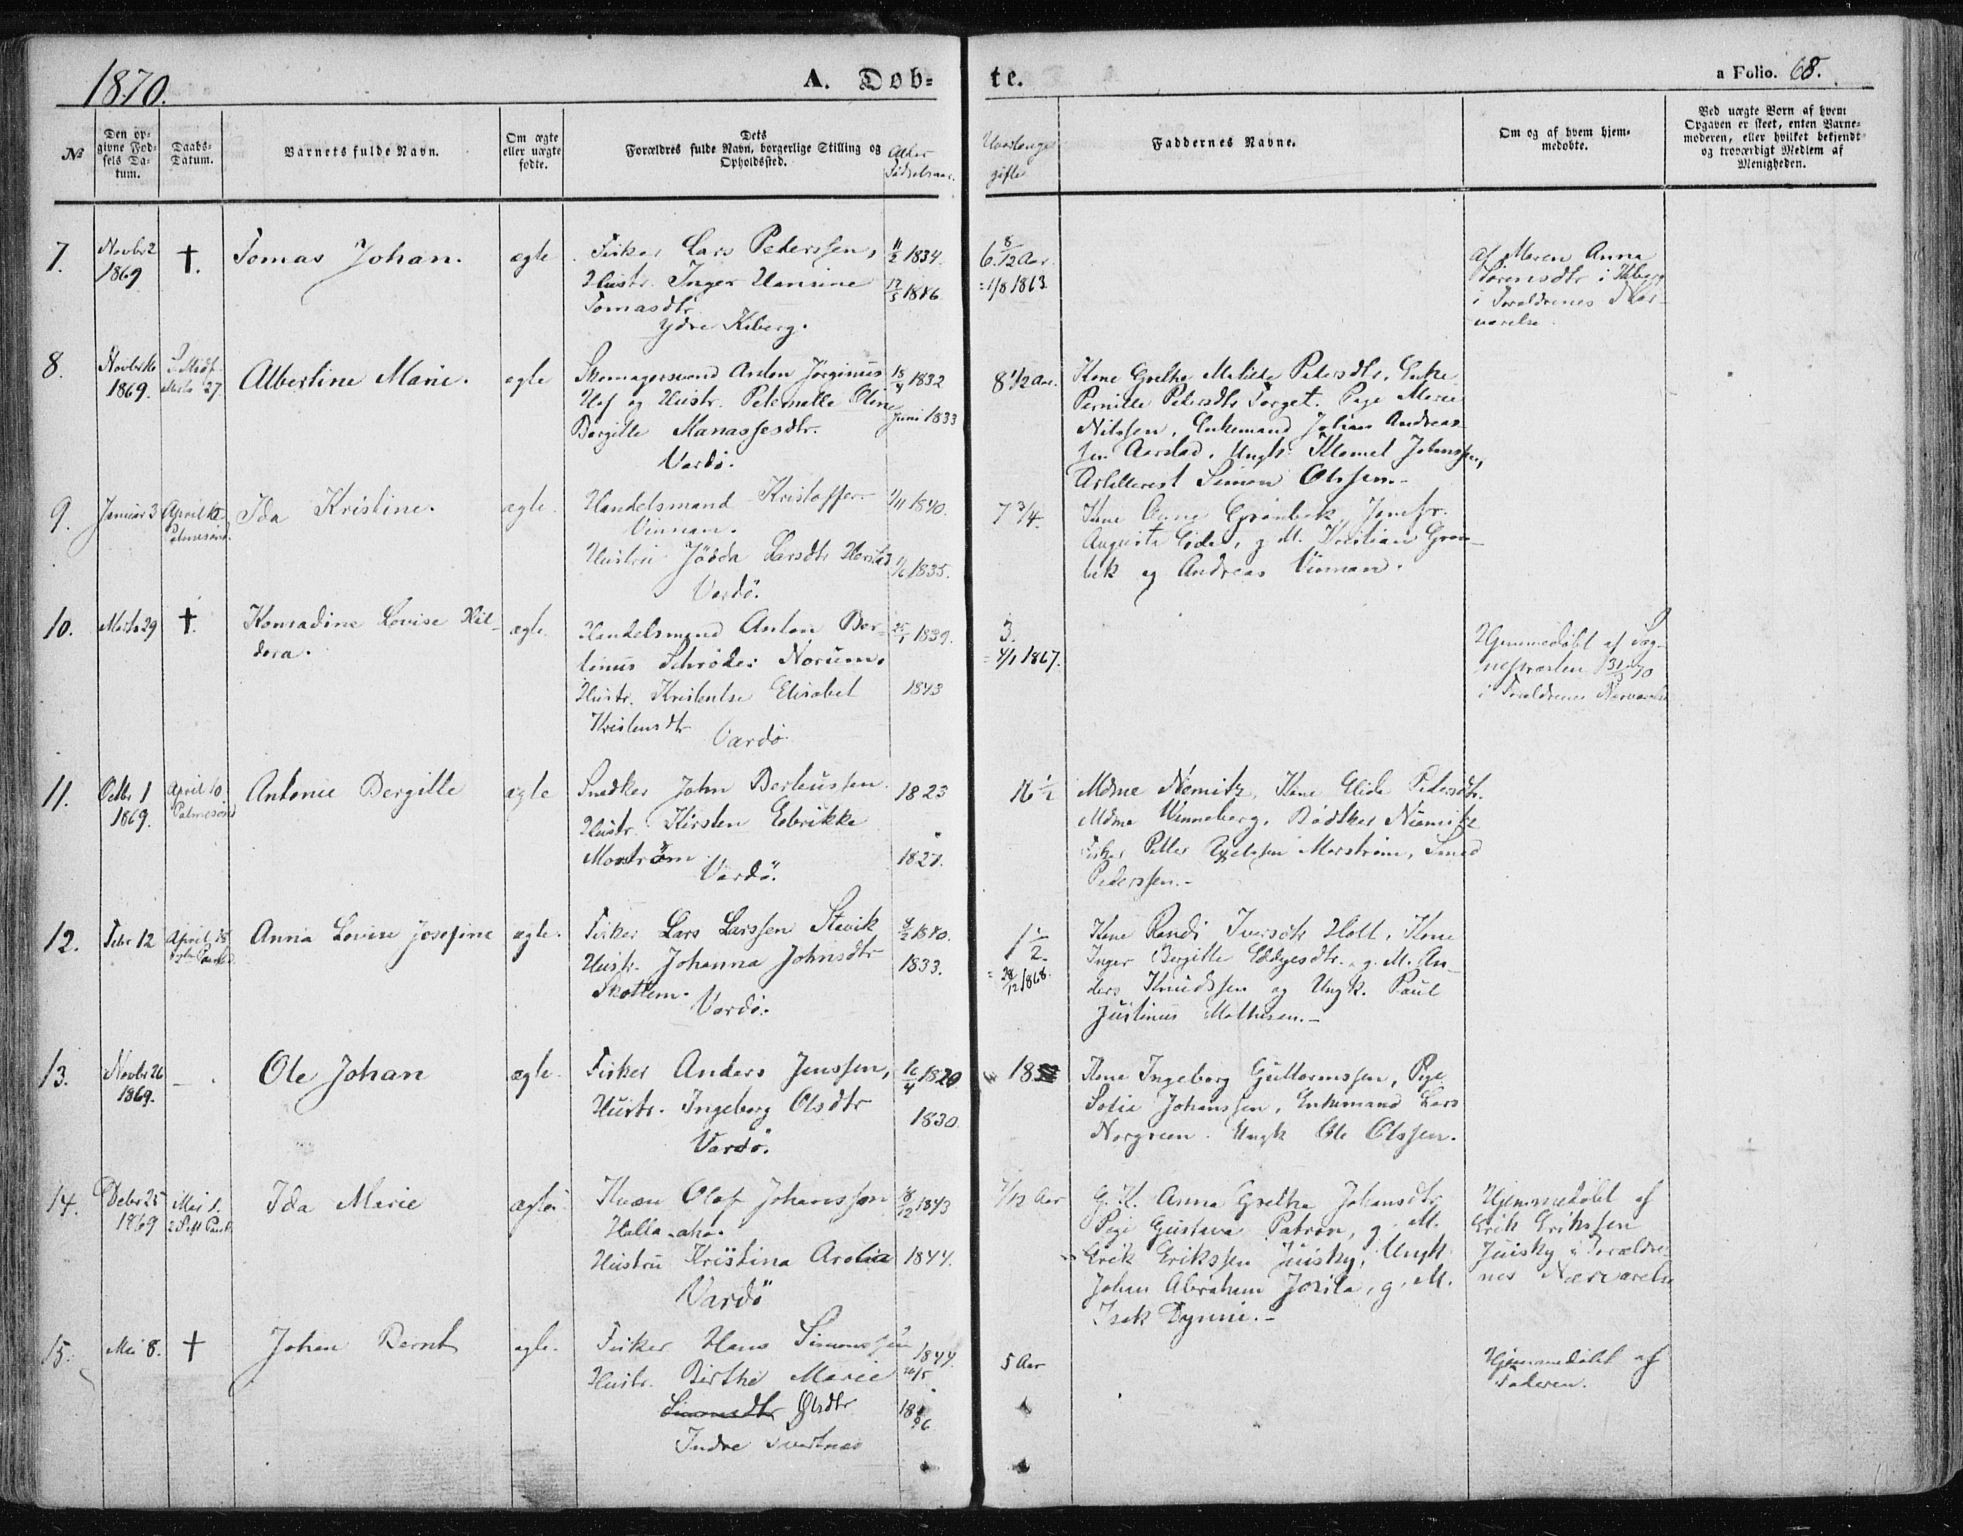 1870.
A. Døb=
te.
a Folio. 68.
№
Den op-
givne Fød-
sels Da-
tum.
Daabs-
Datum.
Barnets fulde Navn.
Om ægte
eller uægte
fødte.
Dets
Forældres fulde Navn, borgerlige Stilling og
Opholdssted.
Alder
Fødselsaar.
Hvorlenge
gifte
Faddernes Navne.
Om og af hvem hjem-
medøbte.
Ved uægte Børn af hvem
Opgaven er skeet, enten Barne-
moderen, eller hvilket bekjendt
og troværdigt Medlem af
Menigheden.
7.
Novbr 2
1869
†.
Tomas Johan.
ægte
Fisker Lars Pederssen,
Hustr. Inger Hansine
Tomasdtr
Ydre Kiberg.
11/2 1834.
17/5 1846
6 8/12 Aar.
=1/8 1863
af Maren Anna
Sørensdtr i Kiberg
i Foreldrenes Nær-
værelse.
8.
Novbr 16
1869.
Marts 27
Albertine Marie.
ægte
Skomagersvend Anton Jørginus
Hof og Hustr. Peternelle Oline
Bergitte Manassesdtr.
Vardö.
18/4 1832
Juni 1833
8 1/2 Aar.
Kone Grethe Matilde Petersdtr, Enke
Pernille Petersdtr Torget. Pige Marie
Nilssen, Enkemand Johan Andreas-
sen Aarstad, Ungk. Klemet Johnssen,
Artillerist Simon Olssen.-
9.
Januar 3
April 10
Palmesønd.
Ida Kristine.
ægte.
Handelsmand Kristoffer
Vinnan.
Hustru Jödda Larsdtr Harstad
Vardö.
1/11 1840.
1/6 1835.
7 3/4.
Kone Anna Grönbek, Jomfr.
Augusta Eide, g. M. Kristian Grön-
bek og Andreas Vinnan.
10.
Marts 29
†.
Konradine Lovise Hil-
dora.
ægte.
Handelsmand Anton Ber-
tinus Schröder Norum.
Hustr. Kristentse Elisabet
Kristensdtr
Vardö
25/1 1839.
1843
3.
=4/1 1867.
Hjemmedøbt af Sog-
nepræsten 31/3 70
i Forældrenes Nærværelse
11.
Octbr 1
1869.
April 10
Palmesønd
Antonie Bergitte
ægte
Snedker John Berteussen
Hustr. Kirsten Edvikke
Morström
Vardö.
1823
1827.
16 1/2
Mdme Nömitz, Kone Elida Pedersdtr.
Mdme Winneberg, Bödker Niemitz
Fisker Petter Morström, Smed
Pederssen.-
12.
Febr 12
April 15
Anna Lovise Josefine
ægte.
Fisker Lars Larssen Stavik
Hustr. Johanna Johnsdtr
Skotlem.
Vardö.
4/2 1840.
1833.
1 1/2.
= 28/12 1868.
Kone Randi Iversdtr Holt, Kone
Inger Bergitte Eddyesdtr. g. M. An-
ders Knudssen og Ungk. Paul
Justinus Mathisen.-
13.
Novbr 26
1869.
-.
Ole Johan
ægte.
Fisker Anders Jenssen,
Hustr. Ingeborg Olsdtr
Vardö.
16/4 1820
1830.
18
Kone Ingeborg Guttormssen, Pige
Sofie Johanssen, Enkemand Lars
Norgreen. Ungk Ole Olssen.
14.
Debr 25
1869
Mai 1.
2 S. eft Paask.
Ida Marie
ægte.
Kvæn Olaf Johanssen
Halla-aho.
Hustru Kristina Arolia
Vardö
8/12 1843
1844.
7/12 Aar
G. K. Anna Gretha Johansdtr
Pige Gustava Patron, g. M.
Erik Erikssen Juisky, Ungk
Johan Abraham Josila, g. M.
Isak Dynni.-
Hjemmedøbt af
Erik Erikssen
Juisky i Forældre-
nes Nærværelse
15.
Mai 8.
†
Johan Bernt
ægte.
Fisker Hans Simonssen
Hustr. Birthe Marie
Simonsdtr Olsdtr
Indre Svartnæs
1844.
10/5
1846
5 Aar
Hjemmedøbt af
Faderen.